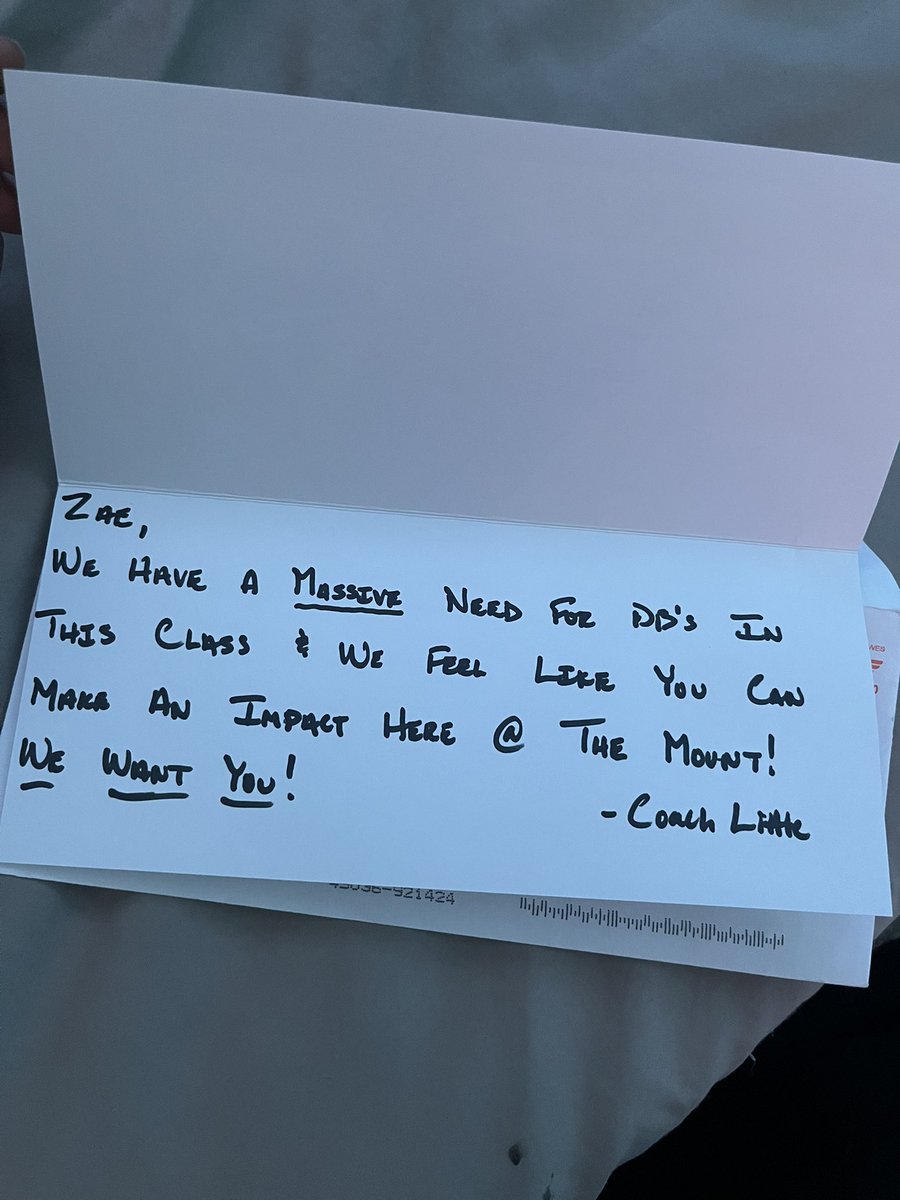 Zae,
We Have A Massive Need For DB's In
This Class & We Feel Like You Can
Make An Impact Here @ The Mount!
We Want You!
-Coach Little